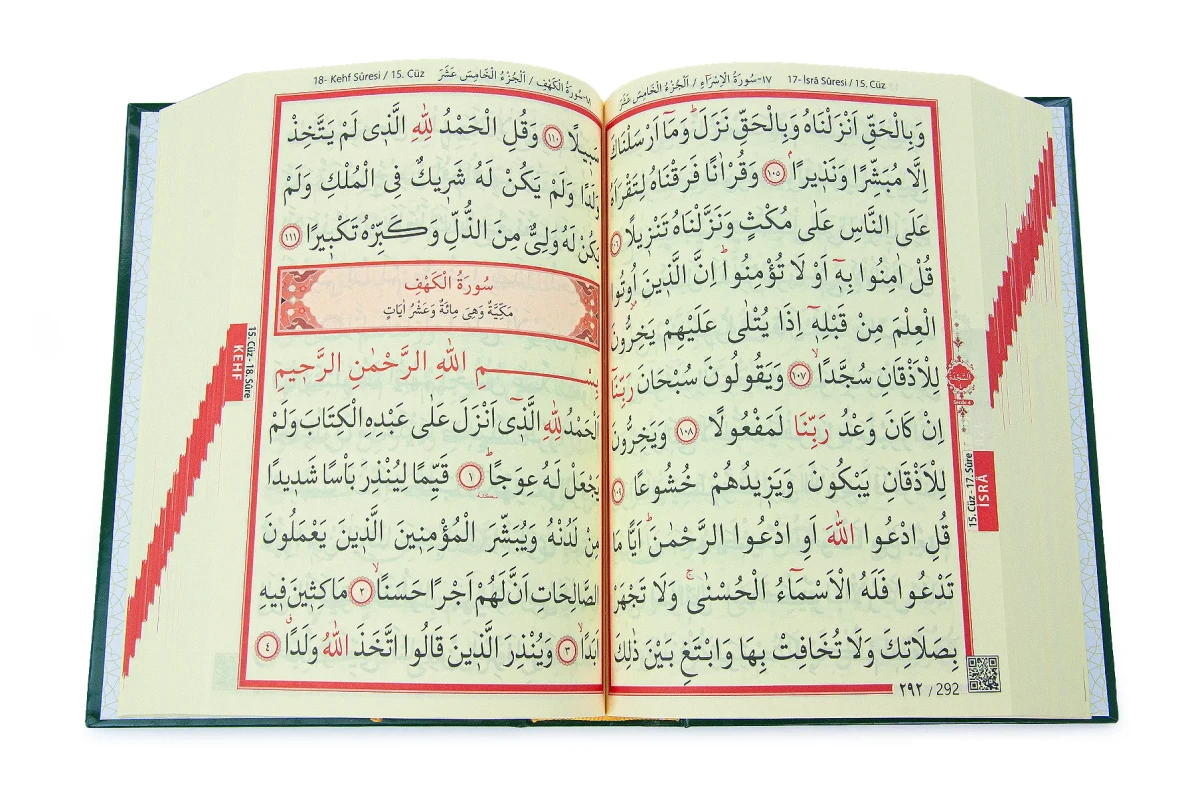 ١٧-سُورَةُ الْاِسْرَاءِ / اَلْجُزْءُ الْخَامِسَ عَشَرَ 17- İsrâ Sûresi / 15. Cüz
وَبِالْحَقِّ اَنْزَلْنَاهُ وَبِالْحَقِّ نَزَلَۜ وَمَٓا اَرْسَلْنَاكَ
اِلَّا مُبَشِّرًا وَنَذ۪يرًاۢ ﴿١٠٥﴾ وَقُرْاٰنًا فَرَقْنَاهُ لِتَقْرَاَهُ
عَلَى النَّاسِ عَلٰى مُكْثٍ وَنَزَّلْنَاهُ تَنْز۪يلًا ﴿١٠٦﴾
قُلْ اٰمِنُوا بِه۪ٓ اَوْ لَا تُؤْمِنُواۜ اِنَّ الَّذ۪ينَ اُو۫تُوا
الْعِلْمَ مِنْ قَبْلِه۪ٓ اِذَا يُتْلٰى عَلَيْهِمْ يَخِرُّونَ
لِلْاَذْقَانِ سُجَّدًاۙ ﴿١٠٧﴾ وَيَقُولُونَ سُبْحَانَ رَبِّنَٓا
اِنْ كَانَ وَعْدُ رَبِّنَا لَمَفْعُولًا ﴿١٠٨﴾ وَيَخِرُّونَ
لِلْاَذْقَانِ يَبْكُونَ وَيَز۪يدُهُمْ خُشُوعًا ﴿١٠٩﴾
قُلِ ادْعُوا اللّٰهَ اَوِ ادْعُوا الرَّحْمٰنَۜ اَيًّا مَا
تَدْعُوا فَلَهُ الْاَسْمَٓاءُ الْحُسْنٰىۚ وَلَا تَجْهَرْ
بِصَلَاتِكَ وَلَا تُخَافِتْ بِهَا وَابْتَغِ بَيْنَ ذٰلِكَ
٢٩٢ / 292
اَلسَّجْدَةُ
15. Cüz - 17. Sûre
İSRÂ
١٨-سُورَةُ الْكَهْفِ / اَلْجُزْءُ الْخَامِسَ عَشَرَ 18- Kehf Sûresi / 15. Cüz
سَب۪يلًا ﴿١١٠﴾ وَقُلِ الْحَمْدُ لِلّٰهِ الَّذ۪ى لَمْ يَتَّخِذْ
وَلَدًا وَلَمْ يَكُنْ لَهُ شَر۪يكٌ فِى الْمُلْكِ وَلَمْ
يَكُنْ لَهُ وَلِىٌّ مِنَ الذُّلِّ وَكَبِّرْهُ تَكْب۪يرًا ﴿١١١﴾
سُورَةُ الْكَهْفِ
مَكِّيَّةٌ وَهِىَ مِائَةٌ وَعَشْرُ اٰيَاتٍ
بِسْـــــــمِ اللّٰهِ الرَّحْمٰنِ الرَّح۪يمِ
اَلْحَمْدُ لِلّٰهِ الَّذ۪ٓى اَنْزَلَ عَلٰى عَبْدِهِ الْكِتَابَ وَلَمْ
يَجْعَلْ لَهُ عِوَجًاۜ ﴿١﴾ سكته قَيِّمًا لِيُنْذِرَ بَاْسًا شَد۪يدًا
مِنْ لَدُنْهُ وَيُبَشِّرَ الْمُؤْمِن۪ينَ الَّذ۪ينَ يَعْمَلُونَ
الصَّالِحَاتِ اَنَّ لَهُمْ اَجْرًا حَسَنًاۙ ﴿٢﴾ مَاكِث۪ينَ ف۪يهِ
اَبَدًاۙ ﴿٣﴾ وَيُنْذِرَ الَّذ۪ينَ قَالُوا اتَّخَذَ اللّٰهُ وَلَدًاۗ ﴿٤﴾
15. Cüz - 18. Sûre
KEHF